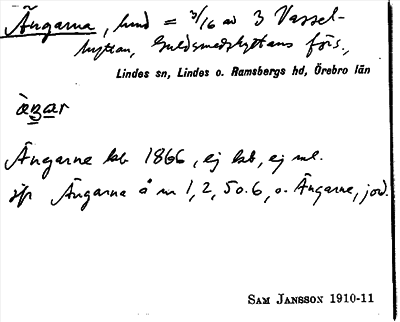 Ängarna, hmd = 3/16 av 3 Vassel-
hyttan, Guldsmedshyttans förs.,
Lindes sn, Lindes o. Ramsbergs hd, Örebro län
Ängarne kb 1866, ej kb, ej ml.
jfr Ängarna å nr 1, 2, 5 o. 6, o. Ängarne, jord.
SAM JANSSON 1910-11